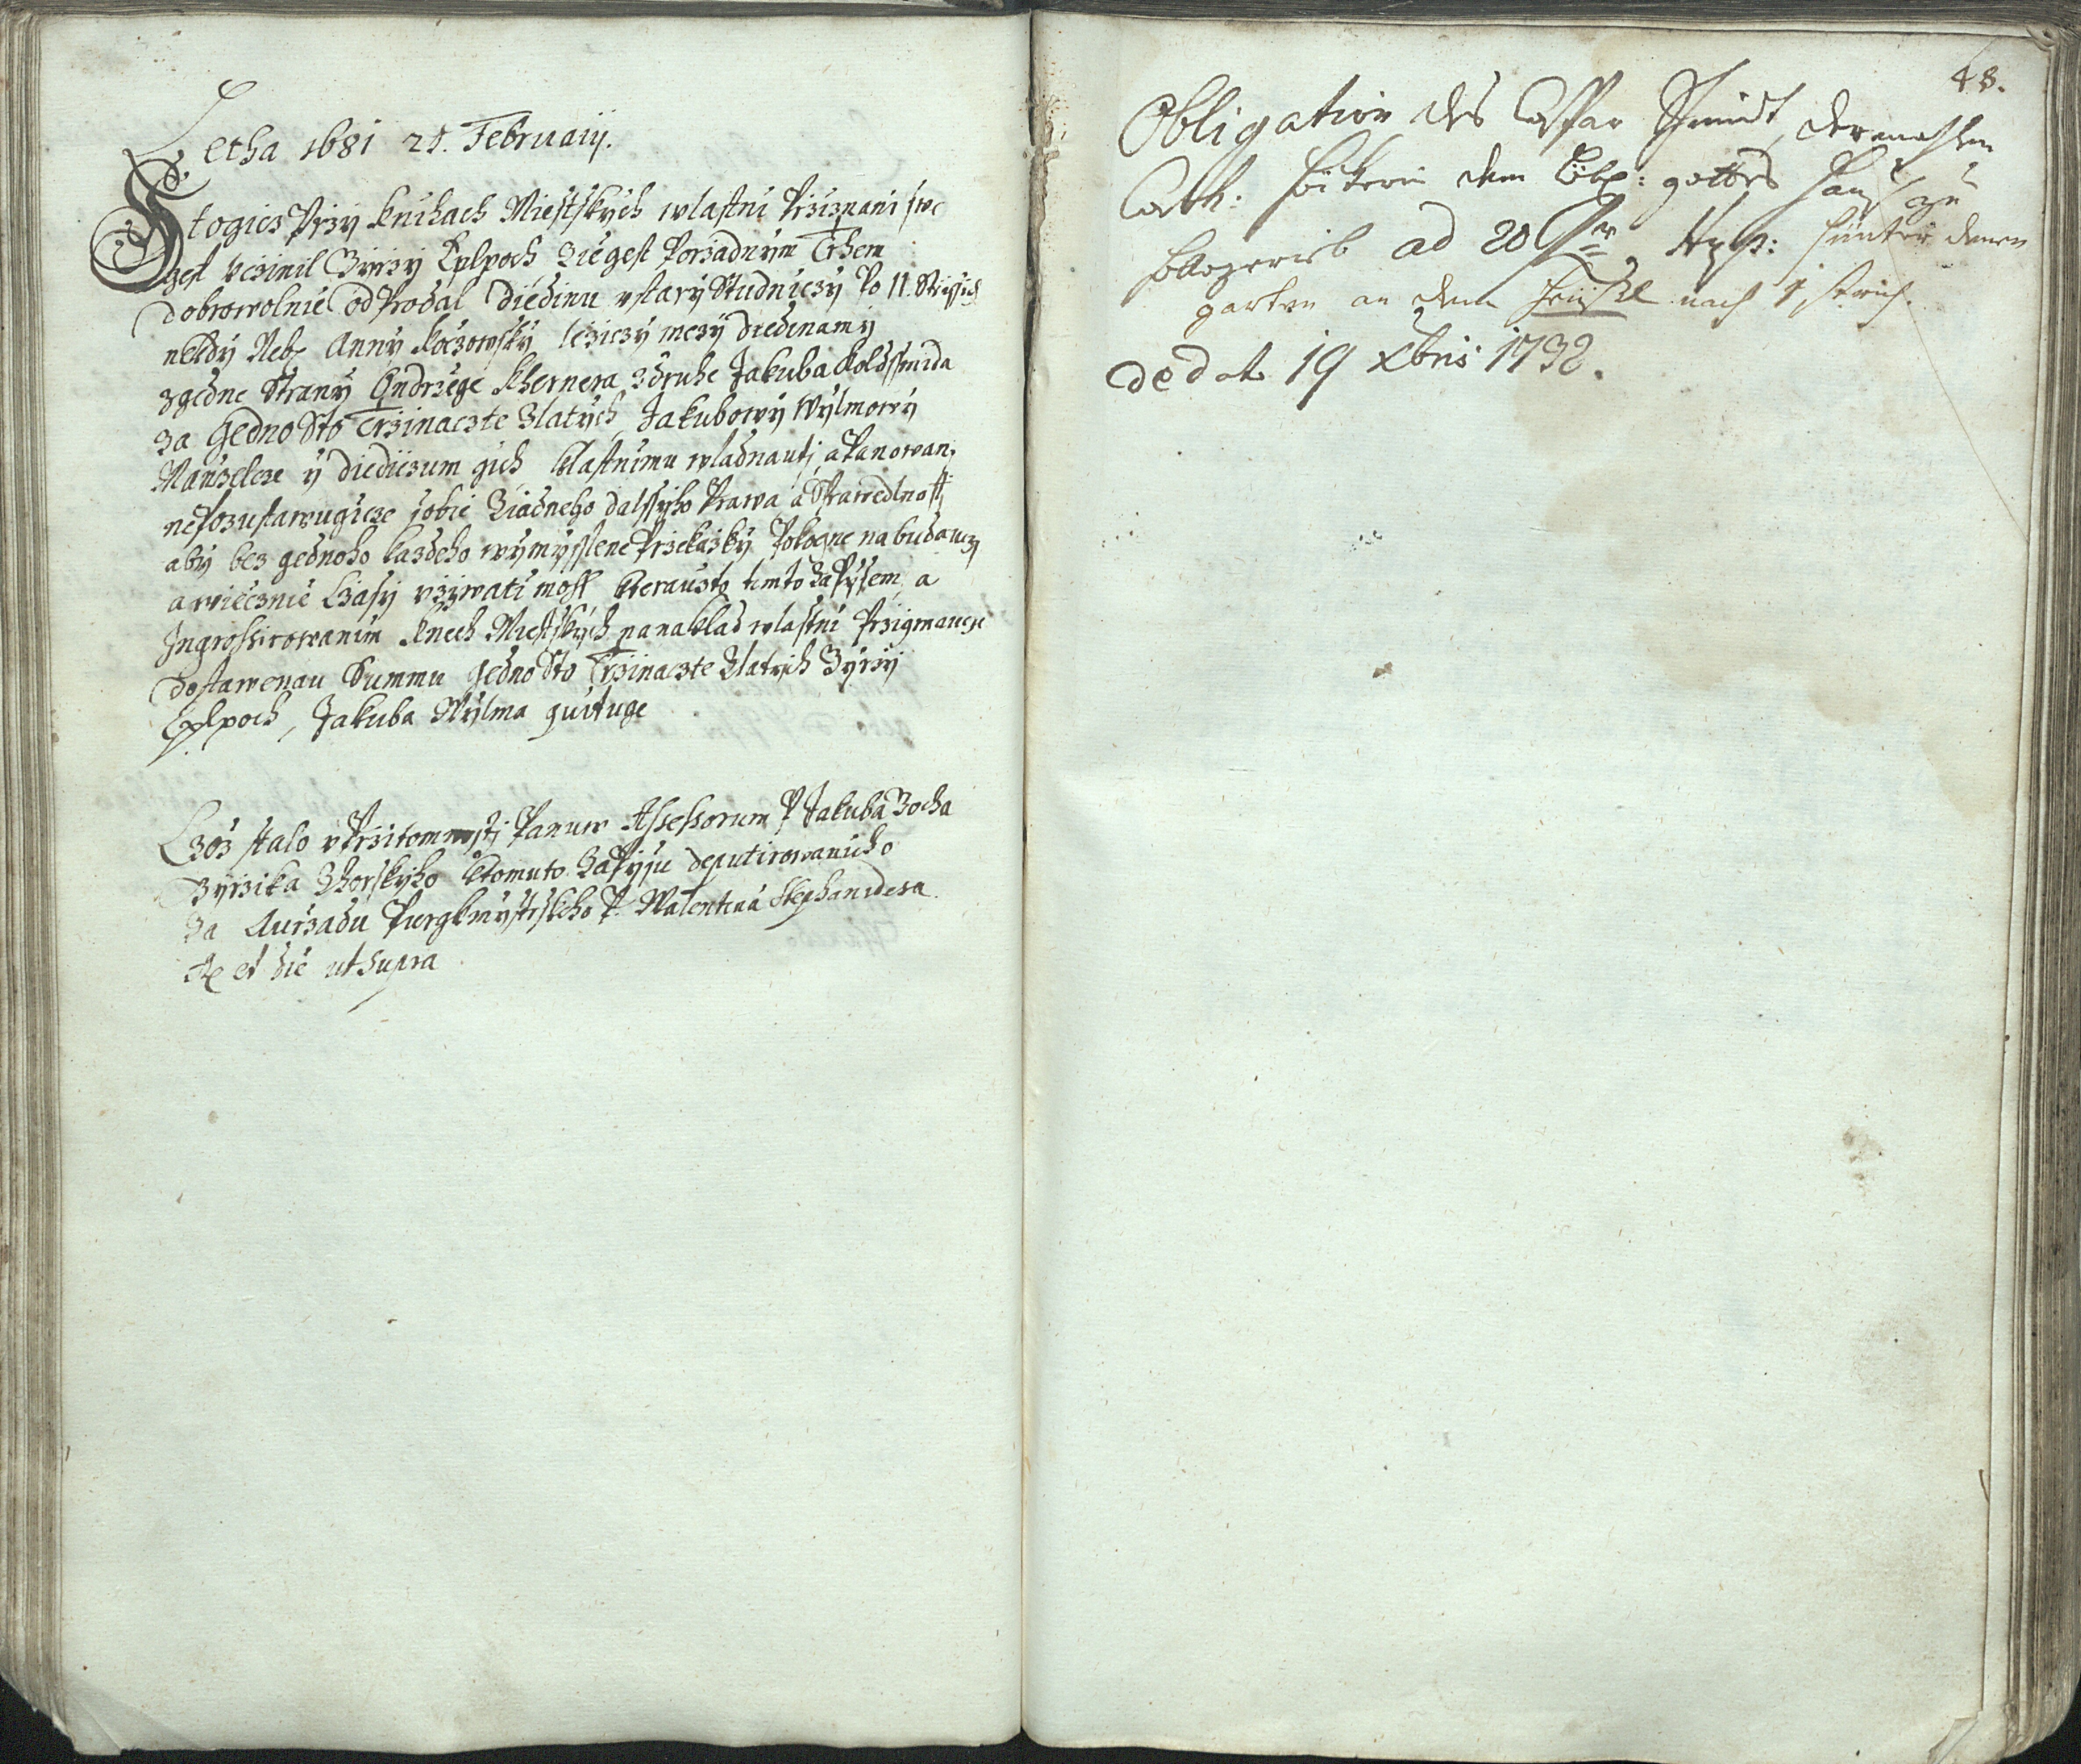 Letha 1681 21. Februaiy.
Stogicz Przy knihach Miestskych wlastni Prziznani swe
gest vczinil Zirzy Eplpoch ziegest Porzadnym Trhem
dobrowolnie odProdal diedinu v stary Studniczy Po 11. Strissich
nekdy Neb Anny koczowsky leziczy mezy diedinamy
zgedne Strany Endrzege Khernera zdruhe Jakuba Goldssmida
za gedno Sto Trzinaczte Zlatych, Jakubowy Wylmowy
Manzelcze y diediczum gich klastnimu wladnauti, a Panowani
nePozustawugicze sobie Ziadneho dalssyho Prawa a Sprawedlnosti
aby bez gednoho kazdeho wymysslene Przekazky Pokogne na buduczy
a wiecznie Czasy vzywati mohl kterauzto timto zaPysem, a
Ingrossirowanim knech Miestskych na naklad wlastni Przigmaucze
dostawenau Summu gedno Sto Trzinaczte Zlatych Zyrzy
Eplpoch, Jakuba Wylma quituge
Czoz stalo v Przitomnosti Panuw Assessorum P Jakuba Zocha
Zyrzika Zhorskyho ktomuto ZaPysu deputirowanicho
za Aurzadu Purgkmystrskeho P. Walentina Stephanidesa
et die ut supra
48.
Obligation des Caspar Schmidt, dermahlen
Cath: dem Löbl: gottes Haus zu
ad 20 hinter denen
garten an dem nach 1 strich.
de dato 19 Xbris 1732.